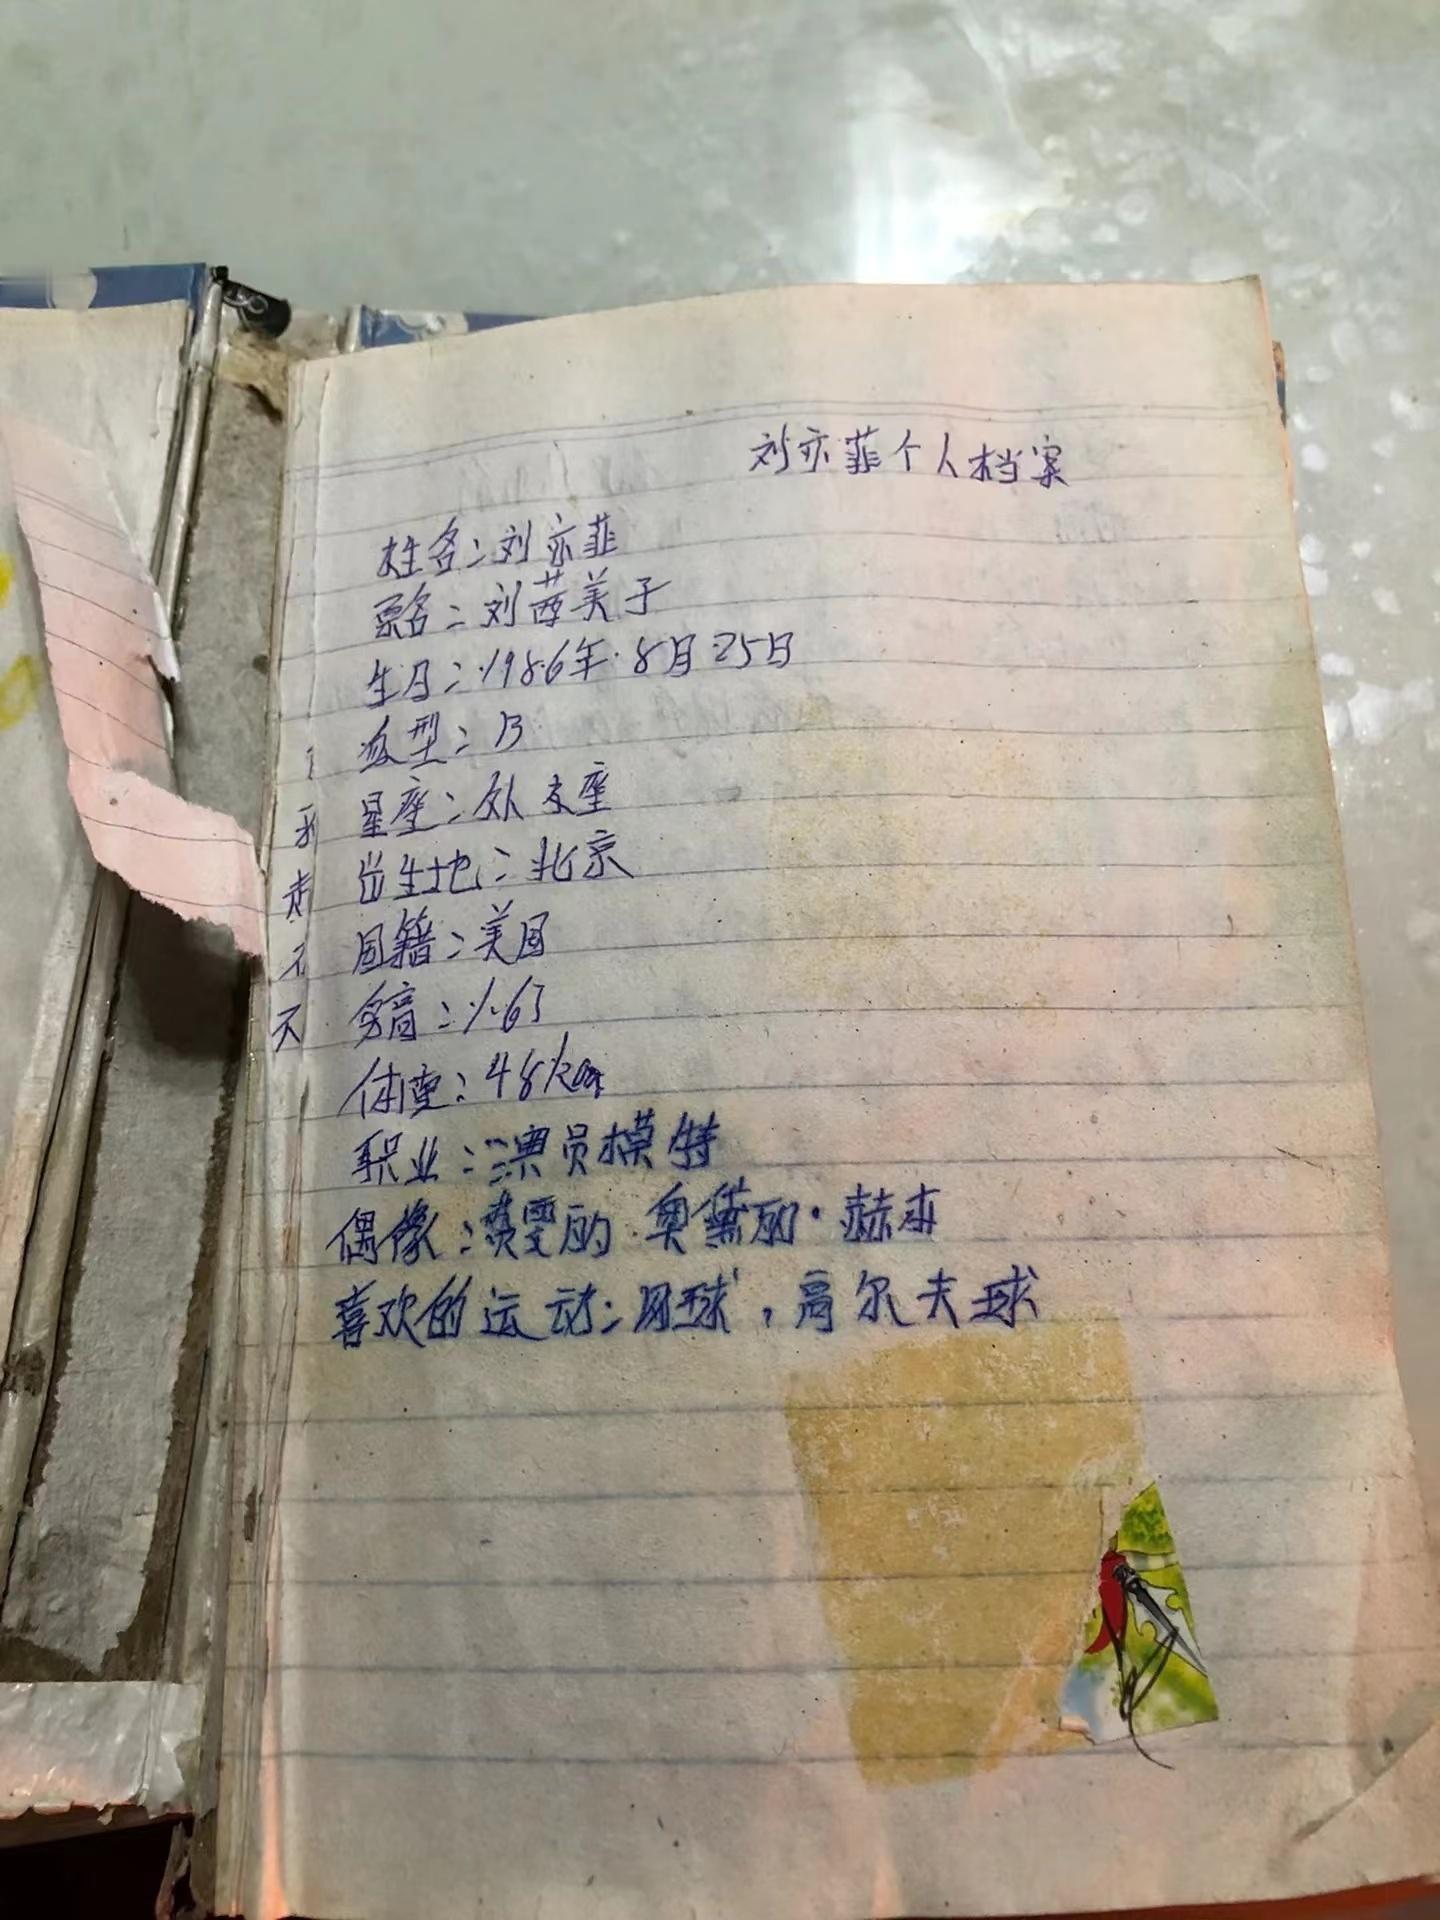 刘亦菲个人档案
姓名：刘亦菲
原名：刘茜美子
生日：1986年·8月25日
血型：B
星座：处女座
出生地：北京
国籍：美国
身高：1.65
体重：48kg
职业：演员模特
偶像：费雯丽·奥黛丽·赫本
喜欢的运动：网球，高尔夫球
不